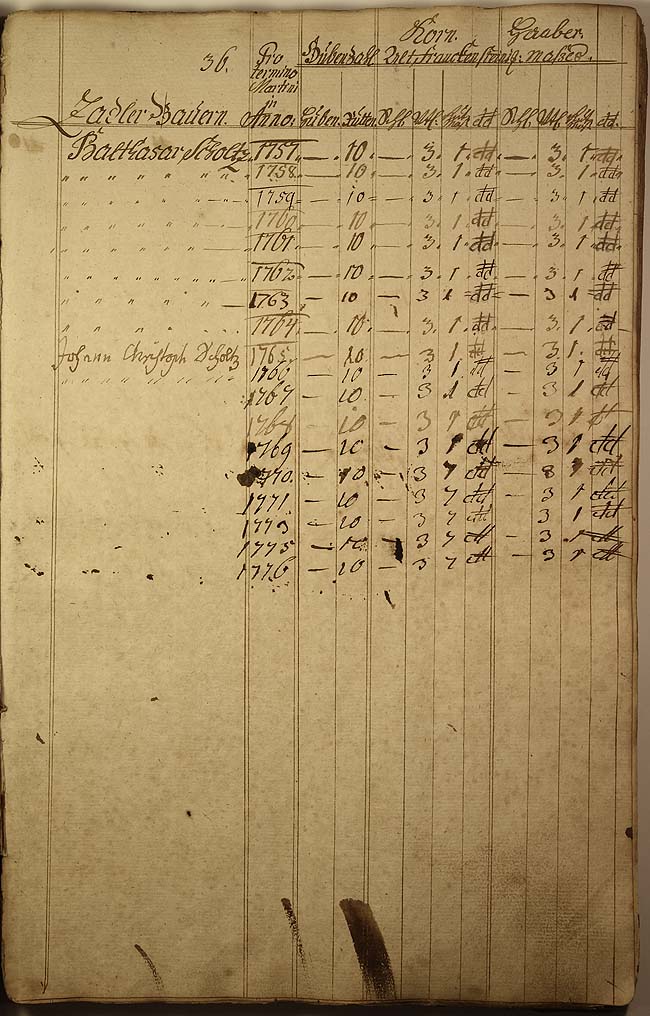 Korn. Haaber.
36. Pro Hubenzahl Alt franckensteinis: maßes.
termino
Martini
in
Zadler Bauern. Anno. Huben. Rutten Schl. Vtl. dd Schl. Vtl. dd.
Balthasar Scholtz. 1757. — 10 — 3. 1. dd — 3. 1. dd
" " " " " " 1758. — 10 — 3. 1. dd — 3. 1. dd
" " " " " " 1759 — 10 — 3. 1. dd — 3. 1 dd
" " " " " " 1760 — 10 — 3. 1. dd — 3. 1. dd
" " " " " " 1761 — 10 — 3. 1. dd — 3. 1. dd
" " " " " " 1762 — 10 — 3. 1. dd — 3. 1. dd
" " " " " " 1763 — 10 — 3 1 dd — 3 1 dd
" " " " " " 1764 — 10. — 3. 1. dd — 3. 1. dd
Johann Christoph Scholtz 1765 — 10 — 3 1. dd — 3. 1. dd
" " " " " " 1766 — 10 — 3 1 dd — 3 1 dd
1767 — 10 — 3 1 dd — 3 1 dd
1768 — 10 — 3 1 dd — 3 1 dd
1769 — 10 — 3 1 dd — 3 1 dd
1770. — 10 — 3 1 dd — 3 1 dd
1771 — 10 — 3 1 dd — 3 1 dd
1773 — 10 — 3 1 dd 3 1 dd
1775 — 10 — 3 1 dd — 3 1 dd
1776 — 10 — 3 1 dd — 3 1 dd